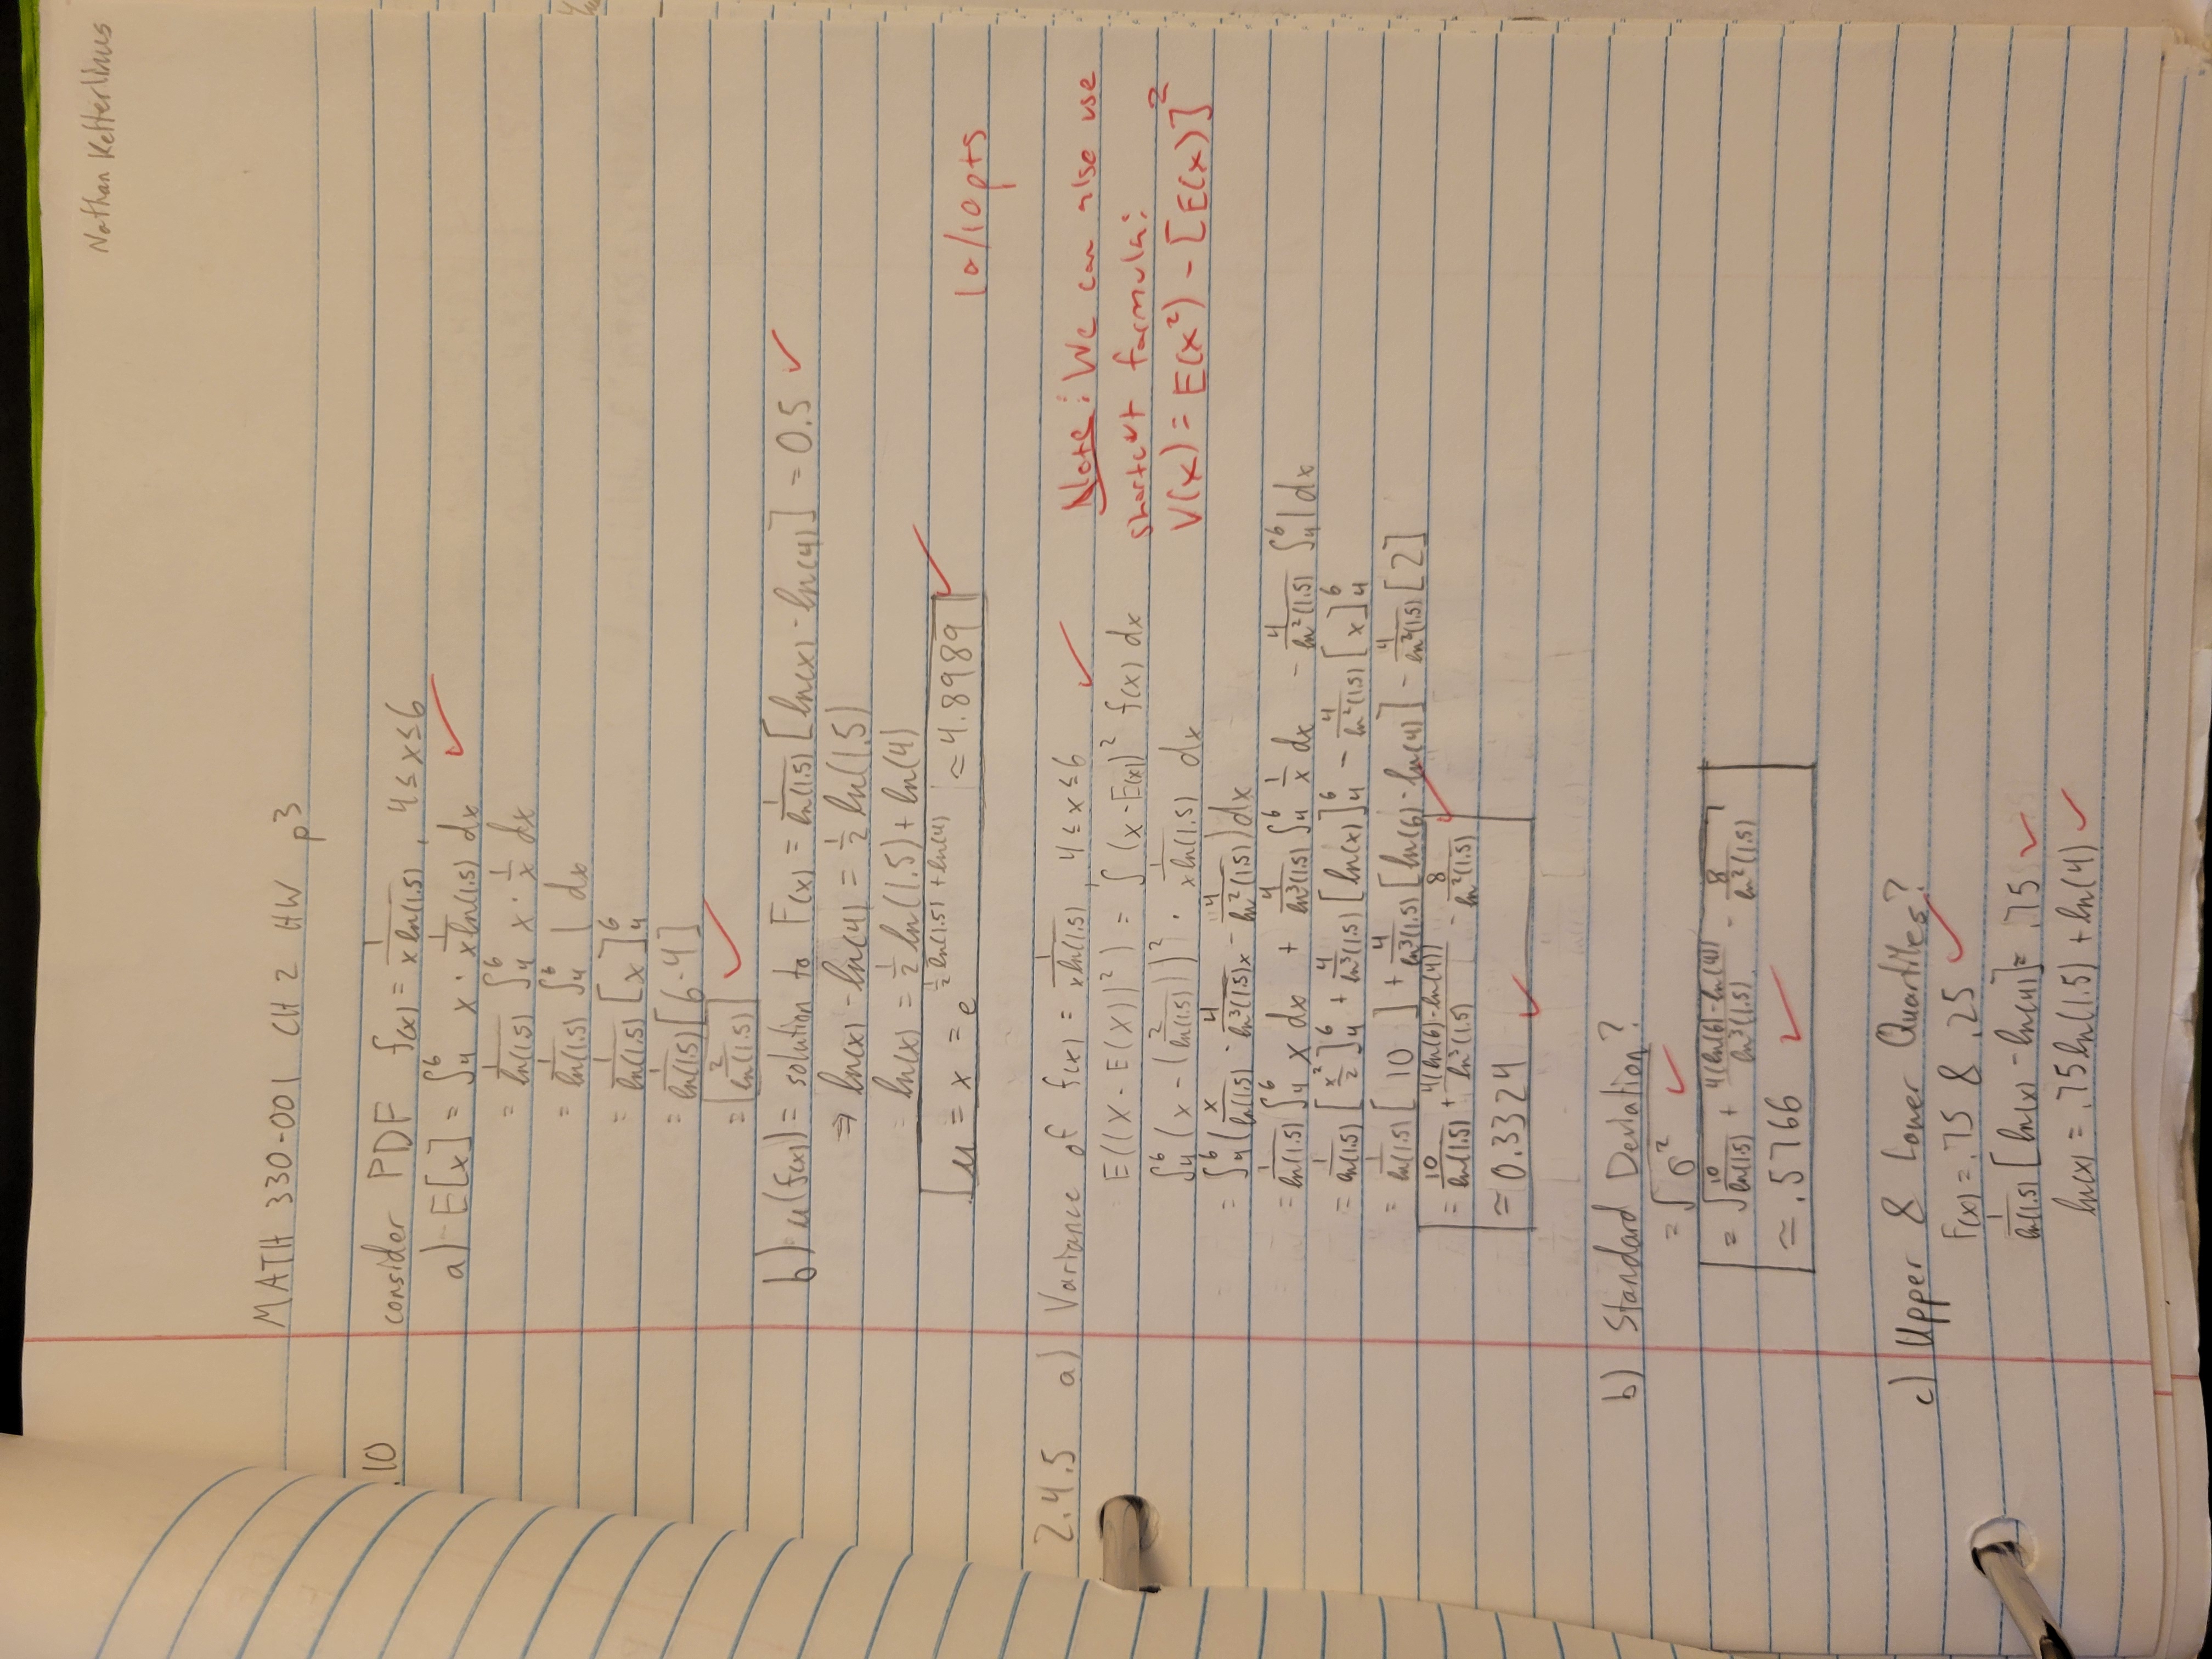 Nathan Ketterlinus
MATH 330-001 CH 2 HW p3
.10 consider PDF f(x) = 1/(x ln(1.5)), 4 ≤ x ≤ 6
a) E[x] = ∫₄⁶ x · 1/(x ln(1.5)) dx ✓
= 1/ln(1.5) ∫₄⁶ x · 1/x dx
= 1/ln(1.5) ∫₄⁶ 1 dx
= 1/ln(1.5) [x]₄⁶
= 1/ln(1.5) [6-4]
= 2/ln(1.5) ✓
b) μ(f(x)) = solution to F(x) = 1/ln(1.5) [ln(x) - ln(4)] = 0.5 ✓
⇒ ln(x) - ln(4) = 1/2 ln(1.5)
= ln(x) = 1/2 ln(1.5) + ln(4)
μ = x = e^(1/2 ln(1.5) + ln(4)) ≃ 4.8989 ✓
10/10pts
2.4.5 a) Variance of f(x) = 1/(x ln(1.5)), 4 ≤ x ≤ 6 ✓
Note: We can also use
shortcut formula:
V(x) = E(x²) - [E(x)]²
E((X - E(X))²) = ∫ (x - E(x))² f(x) dx
∫₄⁶ (x - (2/ln(1.5)))² · 1/(x ln(1.5)) dx
= ∫₄⁶ (x/ln(1.5) - 4/(ln³(1.5)x) - 4/ln²(1.5)) dx
= 1/ln(1.5) ∫₄⁶ x dx + 4/ln³(1.5) ∫₄⁶ 1/x dx - 4/ln²(1.5) ∫₄⁶ 1 dx
= 1/ln(1.5) [x²/2]₄⁶ + 4/ln³(1.5) [ln(x)]₄⁶ - 4/ln²(1.5) [x]₄⁶
= 1/ln(1.5) [10] + 4/ln³(1.5) [ln(6) - ln(4)] - 4/ln²(1.5) [2]
= 10/ln(1.5) + 4(ln(6) - ln(4))/ln³(1.5) - 8/ln²(1.5) ✓
≃ 0.3324 ✓
b) Standard Deviation?
= √σ² ✓
= √(10/ln(1.5) + 4(ln(6) - ln(4))/ln³(1.5) - 8/ln²(1.5))
≃ .5766 ✓
c) Upper & Lower Quartiles?
F(x) = .75 & .25 ✓
1/ln(1.5) [ln(x) - ln(4)] = .75 ✓
ln(x) = .75 ln(1.5) + ln(4) ✓